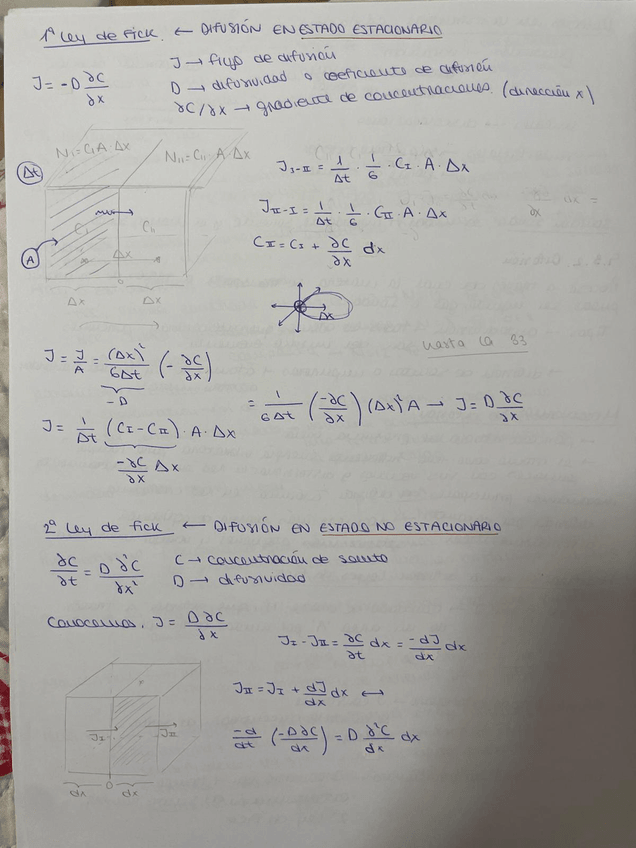 1ª Ley de Fick. ← DIFUSIÓN EN ESTADO ESTACIONARIO
J = -D ∂C/∂x
J → flujo de difusión
D → difusividad o coeficiente de difusión
∂C/∂x → gradiente de concentraciones. (dirección x)
Δt
N₁ = C₁ A · Δx
N₁₁ = C₁₁ A · Δx
C₁
C₁₁
Δx
A
Δx Δx
J_I-II = 1/Δt · 1/6 · C_I · A · Δx
J_II-I = 1/Δt · 1/6 · C_II · A · Δx
C_II = C_I + ∂C/∂x dx
Δx
hasta la 33
J = J/A = (Δx)²/6Δt (- ∂C/∂x)
-D
= 1/6Δt (-∂C/∂x) (Δx)² A → J = D ∂C/∂x
J = 1/Δt (C_I - C_II) · A · Δx
-∂C/∂x Δx
2ª Ley de Fick ← DIFUSIÓN EN ESTADO NO ESTACIONARIO
∂C/∂t = D ∂²C/∂x²
C → concentración de soluto
D → difusividad
Conocemos, J = D∂C/∂x
J_I - J_II = ∂C/∂t dx = -dJ/dx dx
J_II = J_I + dJ/dx dx ↔
-d/dt (-D∂C/dx) = D ∂²C/dx dx
J_I
J_II
0
dx dx